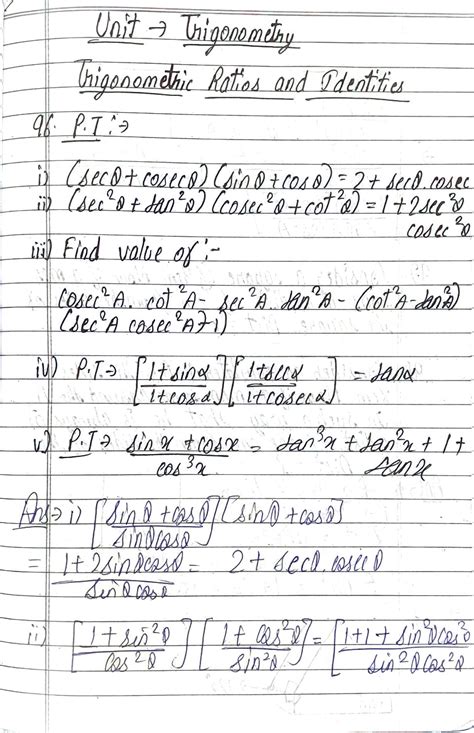 Unit → Trigonometry
Trigonometric Ratios and Identities
96. P.T :→
i) (secθ + cosecθ) (sinθ + cosθ) = 2 + secθ. cosec
ii) (sec²θ + tan²θ) (cosec²θ + cot²θ) = 1 + 2sec²θ
cosec²θ
iii) Find value of :-
cosec²A. cot²A - sec²A tan²A - (cot²A - tan²A)
(sec²A cosec²A - 1)
iv) P.T.→ [1 + sinα / 1 + cosα] [1 + secα / 1 + cosecα] = tanα
v) P.T→ sinx + cosx / cos³x = tan³x + tan²x + 1 +
tanx
Ans→ i) [sinθ + cosθ / sinθcosθ] [sinθ + cosθ]
= 1 + 2sinθcosθ / sinθcosθ = 2 + secθ. cosecθ
ii) [1 + sin²θ / cos²θ] [1 + cos²θ / sin²θ] = [1 + 1 + sin²θcos²θ / sin²θcos²θ